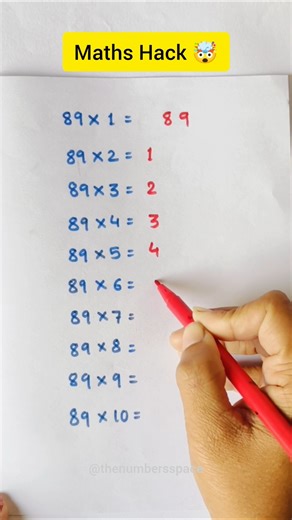 Maths Hack 🤯
89 × 1 = 89
89 × 2 = 1
89 × 3 = 2
89 × 4 = 3
89 × 5 = 4
89 × 6 =
89 × 7 =
89 × 8 =
89 × 9 =
89 × 10 =
@thenumbersspace